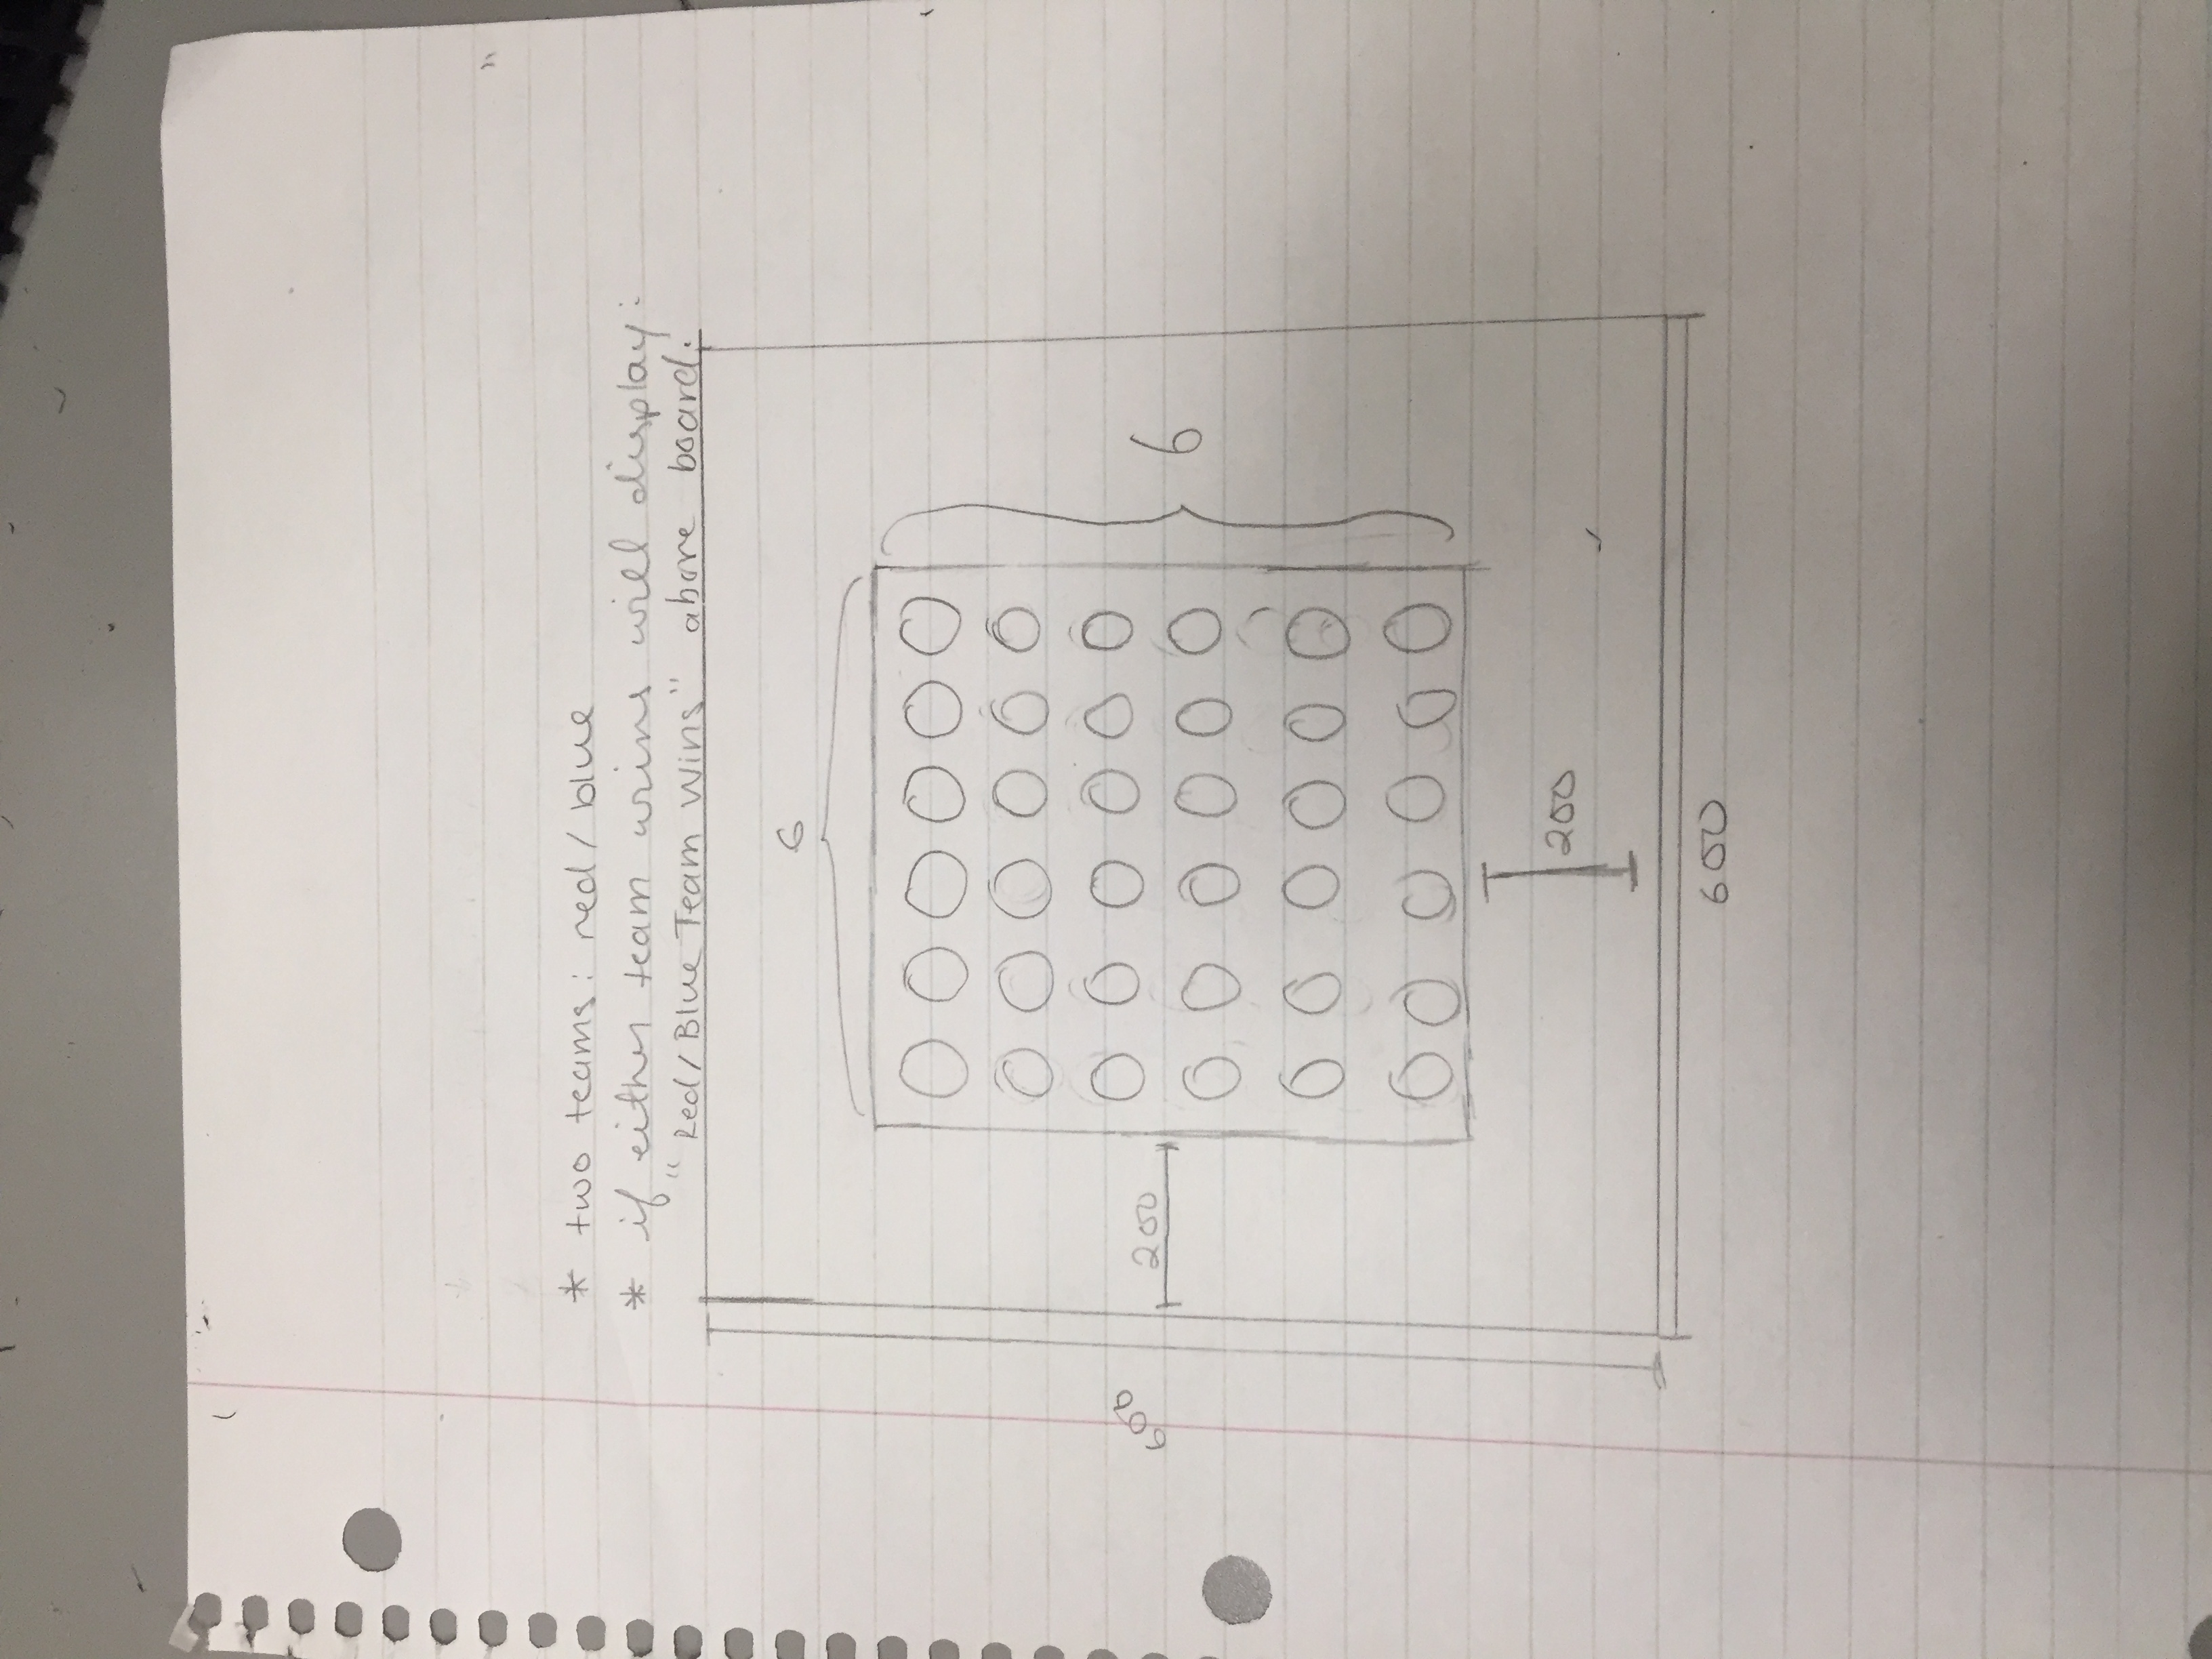 * two teams: red/blue
* if either team wins will display:
"Red/Blue Team Wins" above board.
6
6
200
600
200
600